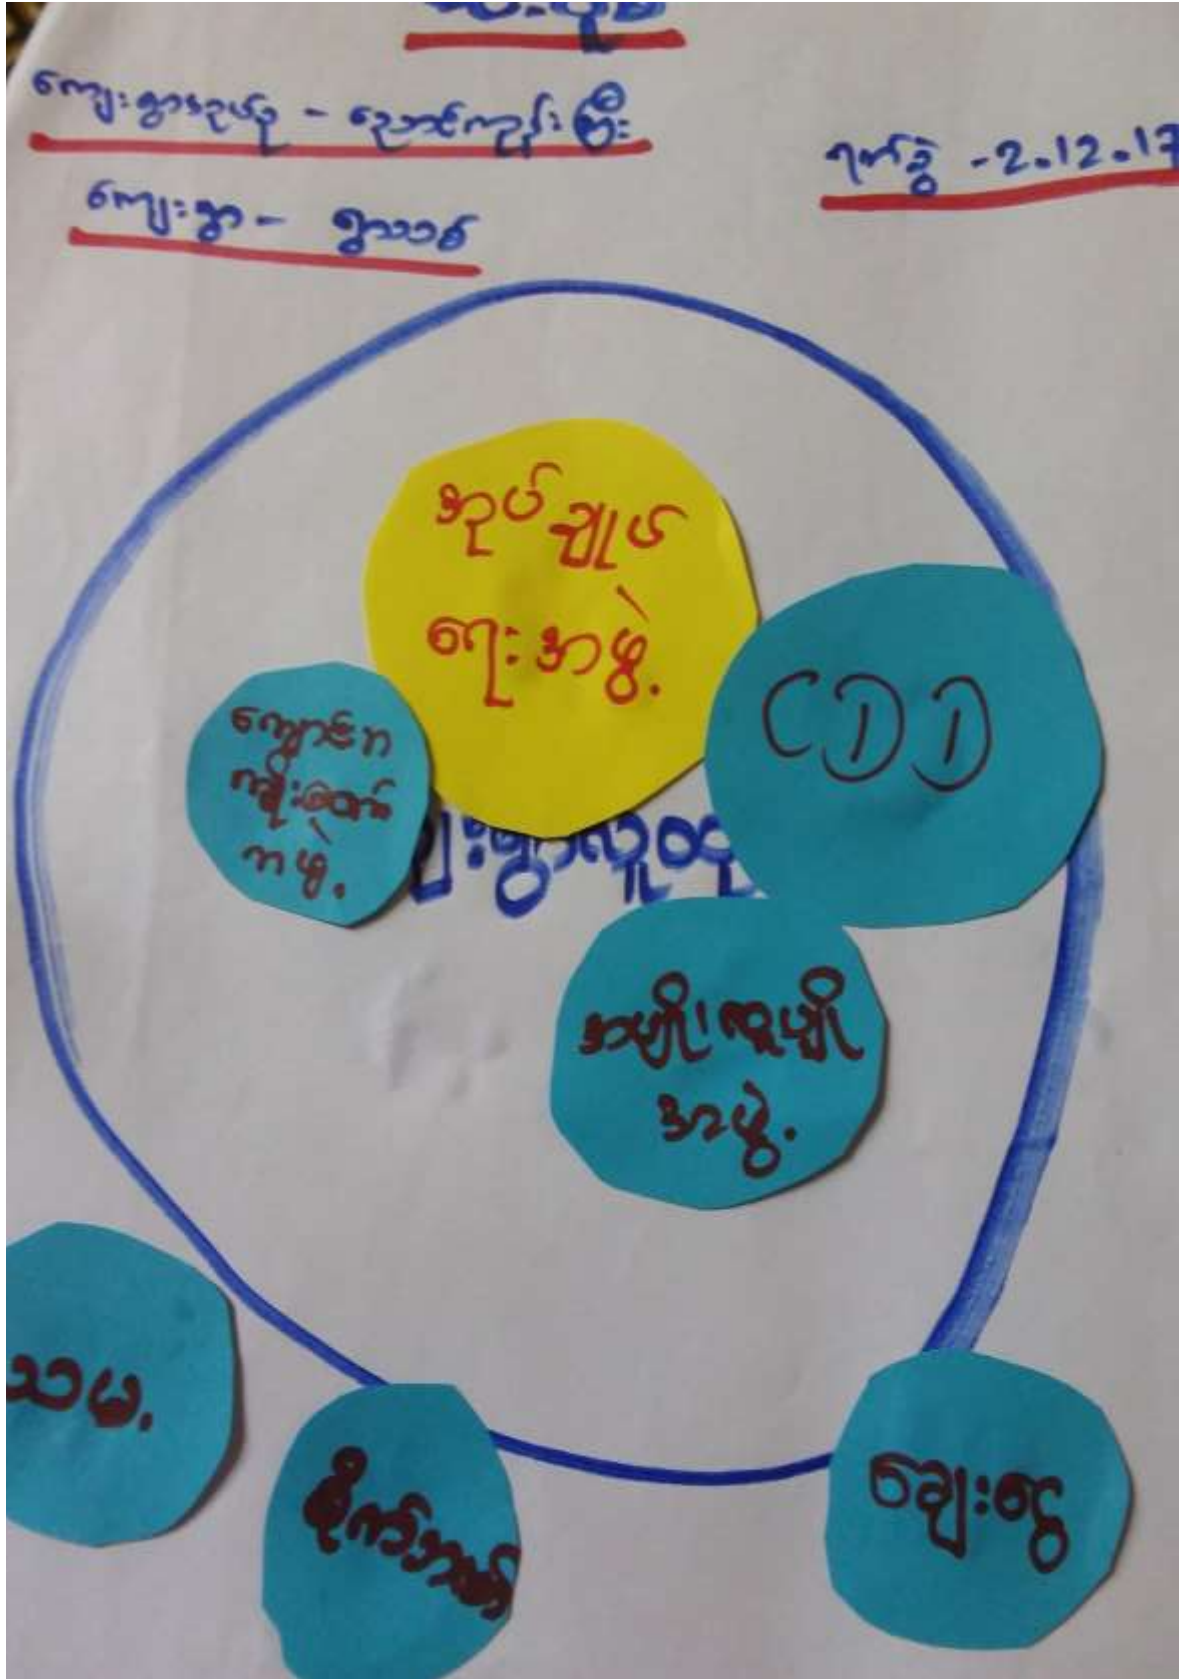 ကျေးရွာအုပ်စု - ညောင်ကျွန်းကြီး
ရက်စွဲ - 2.12.17
ကျေးရွာ - ရွာသစ်
အုပ်ချုပ်
ရေးအဖွဲ့
CDD
ကျောင်းက
အဖွဲ့
အမျိုးသမျို
အဖွဲ့
သမ.
စိုက်ဘဏ်
ချေးငွေ